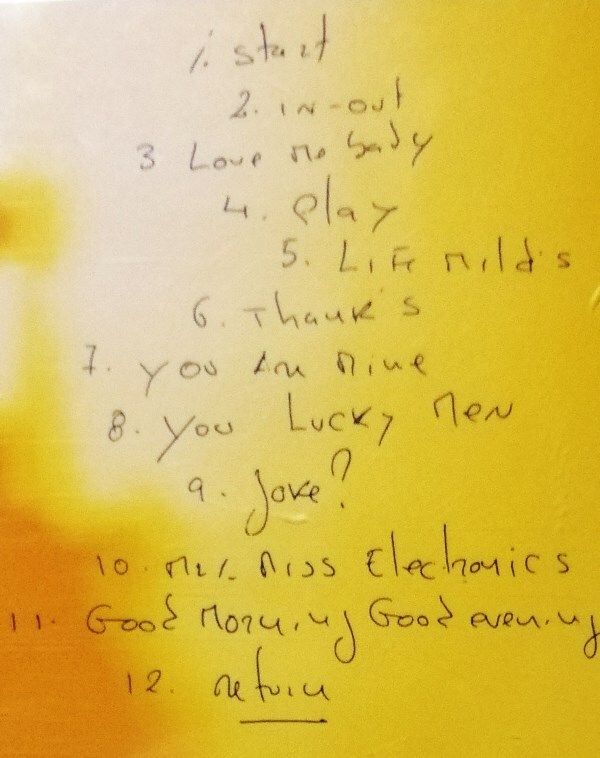 1. Start
2. IN-OUT
3 Love me bady
4. Play
5. LIFE Mild's
6. Thank's
7. You Are Mine
8. You Lucky Men
9. Joke?
10. Mr. Miss Electronics
11. Good Morning Good evening
12. Return